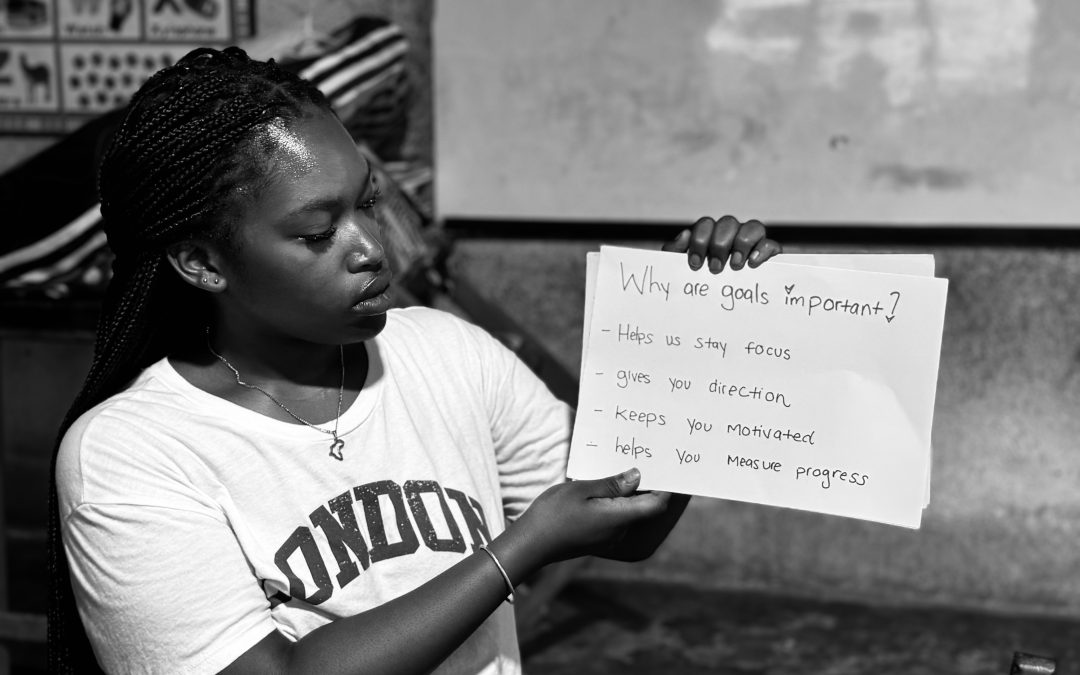 Why are goals important?
- Helps us stay focus
- gives you direction
- keeps you motivated
- helps you Measure progress
LONDON